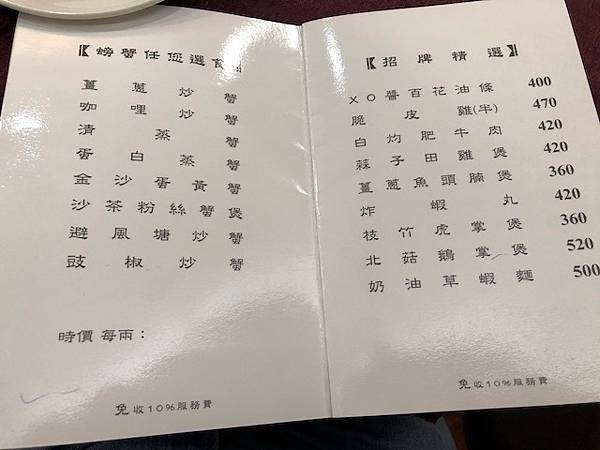 【螃蟹任您選食】
薑蔥炒蟹
咖哩炒蟹
清蒸蟹
蛋白蒸蟹
金沙蛋黃蟹
沙茶粉絲蟹煲
避風塘炒蟹
豉椒炒蟹
時價 每兩：
免收10%服務費
【招牌精選】
XO醬百花油條 400
脆皮雞(半) 470
白灼肥牛肉 420
蒜子田雞煲 420
薑蔥魚頭腩煲 360
炸蝦丸 420
枝竹虎掌煲 360
北菇鵝掌煲 520
奶油草蝦麵 500
免收10%服務費